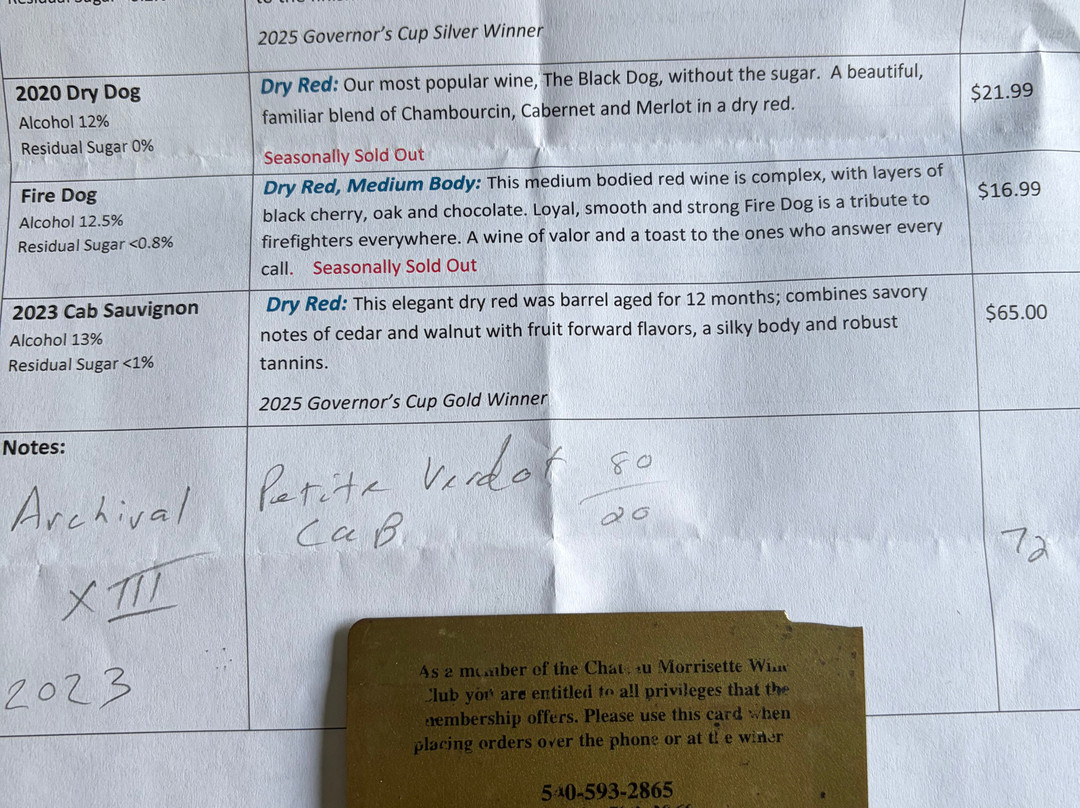 2025 Governor's Cup Silver Winner
2020 Dry Dog
Alcohol 12%
Residual Sugar 0%
Dry Red: Our most popular wine, The Black Dog, without the sugar. A beautiful,
familiar blend of Chambourcin, Cabernet and Merlot in a dry red.
Seasonally Sold Out
$21.99
Fire Dog
Alcohol 12.5%
Residual Sugar <0.8%
Dry Red, Medium Body: This medium bodied red wine is complex, with layers of
black cherry, oak and chocolate. Loyal, smooth and strong Fire Dog is a tribute to
firefighters everywhere. A wine of valor and a toast to the ones who answer every
call. Seasonally Sold Out
$16.99
2023 Cab Sauvignon
Alcohol 13%
Residual Sugar <1%
Dry Red: This elegant dry red was barrel aged for 12 months; combines savory
notes of cedar and walnut with fruit forward flavors, a silky body and robust
tannins.
2025 Governor's Cup Gold Winner
$65.00
Notes:
Archival
XIII
2023
Petite Verdot 80
Cab 20
72
As a member of the Chateau Morrisette Wine
Club you are entitled to all privileges that the
membership offers. Please use this card when
placing orders over the phone or at the winer
540-593-2865